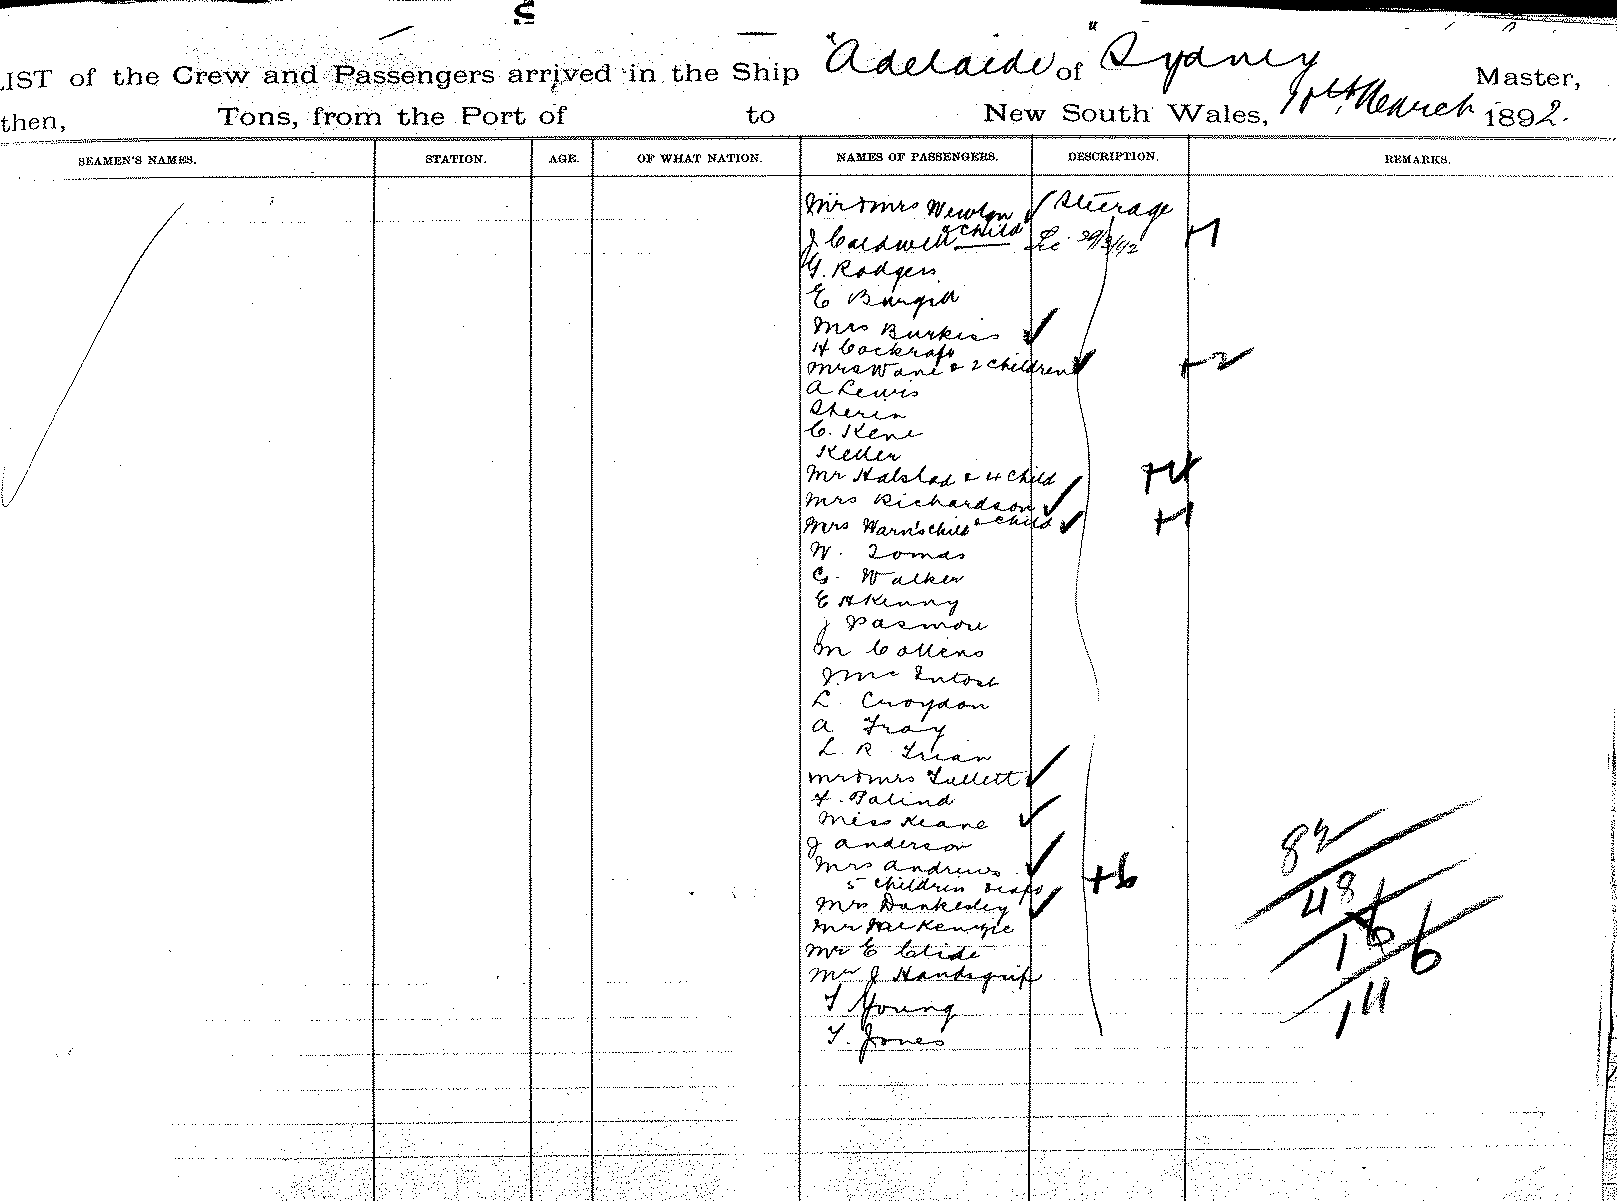 S
LIST of the Crew and Passengers arrived in the Ship "Adelaide" of Sydney Master,
then, Tons, from the Port of to New South Wales, 10th March 1892.
SEAMEN'S NAMES. STATION. AGE. OF WHAT NATION. NAMES OF PASSENGERS. DESCRIPTION. REMARKS.
Mr & Mrs Newton Steerage
J Caldwell & child +1
G. Rodgers
E
Mrs Burkiss
H Cockraft
Mrs Wane & 2 children +2
A Lewis
Sheren
C. Kene
Keller
Mr Halstad & 4 child +4
Mrs Richardson
Mrs Warnschild & child +1
W. Tomas
G. Walker
E H Kenny
J Pasmore
M Collens
J Mc Intosh
L. Croydon
A Fray
L. R.
Mr & Mrs Tullett
F. Palind
Miss Keane
J Anderson
Mrs Andrews
5 children & +6
Mrs Dunkesley
Mr McKenzie
Mr E Clide
Mr J
T Young
T. Jones
82
48
16
6
14